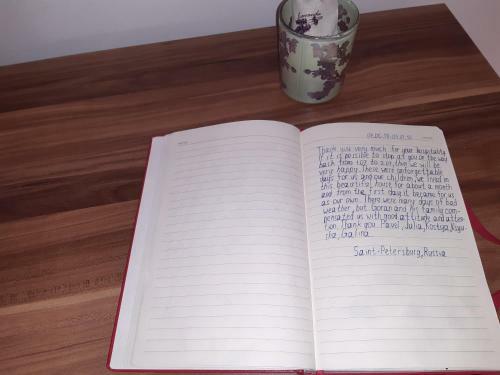 Lavender
Thank you very much for your hospitality.
If it is possible to stop at you on the way
back from 1.07 to 2.07, then we will be
very happy. These were unforgettable
days for us and our children, we lived in
this beautiful house for about a month
and from the first day it became for us
as our own. There were many days of bad
weather, but Goran and his family com-
pensated us with good attitude and atten-
tion. Thank you. Pavel, Julia, Kostya, Ksyu-
sha, Galina
Saint-Petersburg, Russia